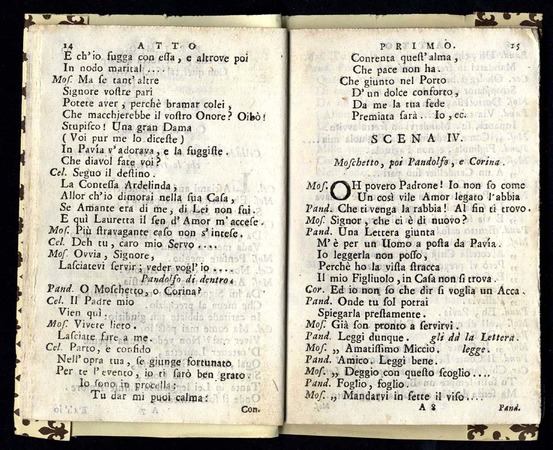 14 ATTO
E ch'io fugga con essa, e altrove poi
In nodo marital ....
Mos. Ma se tant' altre
Signore vostre pari
Potete aver, perchè bramar colei,
Che macchjerebbe il vostro Onore? Oibò!
Stupisco! Una gran Dama
(Voi pur me lo diceste)
In Pavia v'adorava, e la fuggiste.
Che diavol fate voi?
Cel. Seguo il destino.
La Contessa Ardelinda,
Allor ch'io dimorai nella sua Casa,
Se Amante era di me, di Lei non fui.
E quì Lauretta il sen d'Amor m'accese.
Mos. Più stravagante caso non s'intese.
Cel. Deh tu, caro mio Servo ....
Mos. Ovvia, Signore,
Lasciatevi servir; veder vogl'io ....
Pandolfo di dentro.
Pand. O Moschetto, o Corina?
Cel. Il Padre mio
Vien quì.
Mos. Vivete lieto.
Lasciate fare a me.
Cel. Parto, e confido
Nell'opra tua, se giunge fortunato
Per te l'evento, io ti sarò ben grato.
Io sono in procella:
Tu dar mi puoi calma:
Con.
PRIMO. 15
Contenta quest'alma,
Che pace non ha.
Che giunto nel Porto
D'un dolce conforto,
Da me la tua fede
Premiata sarà. Io, ec.
SCENA IV.
Moschetto, poi Pandolfo, e Corina.
Mos. OH povero Padrone! Io non so come
Un così vile Amor legato l'abbia
Pand. Che ti venga la rabbia! Al fin ti trovo.
Mos. Signor, che ci è di nuovo?
Pand. Una Lettera giunta
M'è per un Uomo a posta da Pavia.
Io leggerla non posso,
Perchè ho la vista stracca
Il mio Figliuolo, in Casa non si trova.
Cor. Ed io non so che dir si voglia un Acca.
Pand. Onde tu sol potrai
Spiegarla prestamente.
Mos. Già son pronto a servirvi.
Pand. Leggi dunque. gli dà la Lettera.
Mos. „ Amatissimo Miccio. legge.
Pand. Amico. Leggi bene.
Mos. „ Deggio con questo scoglio ....
Pand. Foglio, foglio.
Mos. „ Mandarvi in fette il viso ....
A 8 Pand.